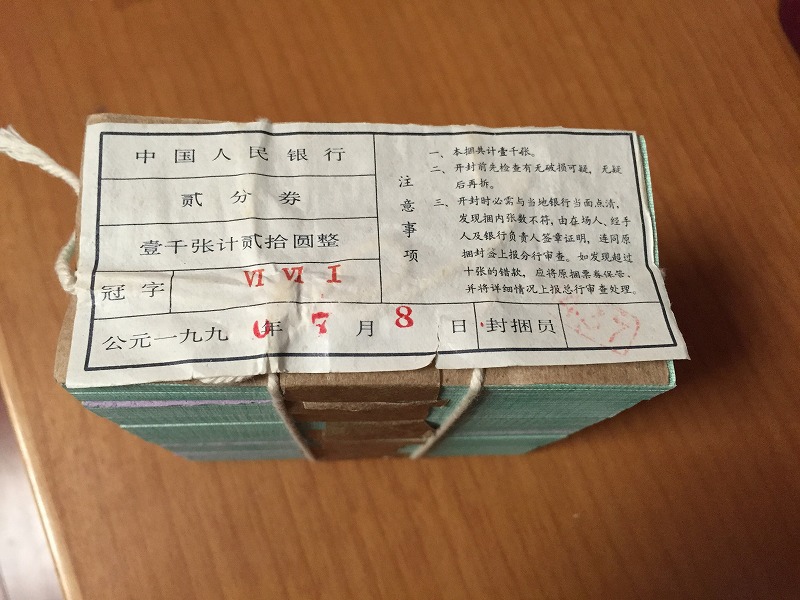 中国人民银行
贰分券
壹千张计贰拾圆整
冠字 VI VI I
公元一九九0年7月8日
封捆员
注意事项
一、本捆共计壹千张。
二、开封前先检查有无破损可疑，无疑
后再拆。
三、开封时必需与当地银行当面点清，
发现捆内张数不符，由在场人、经手
人及银行负责人签章证明，连同原
捆封签上报分行审查。如发现超过
十张的错款，应将原捆票券保管、
并将详细情况上报总行审查处理。